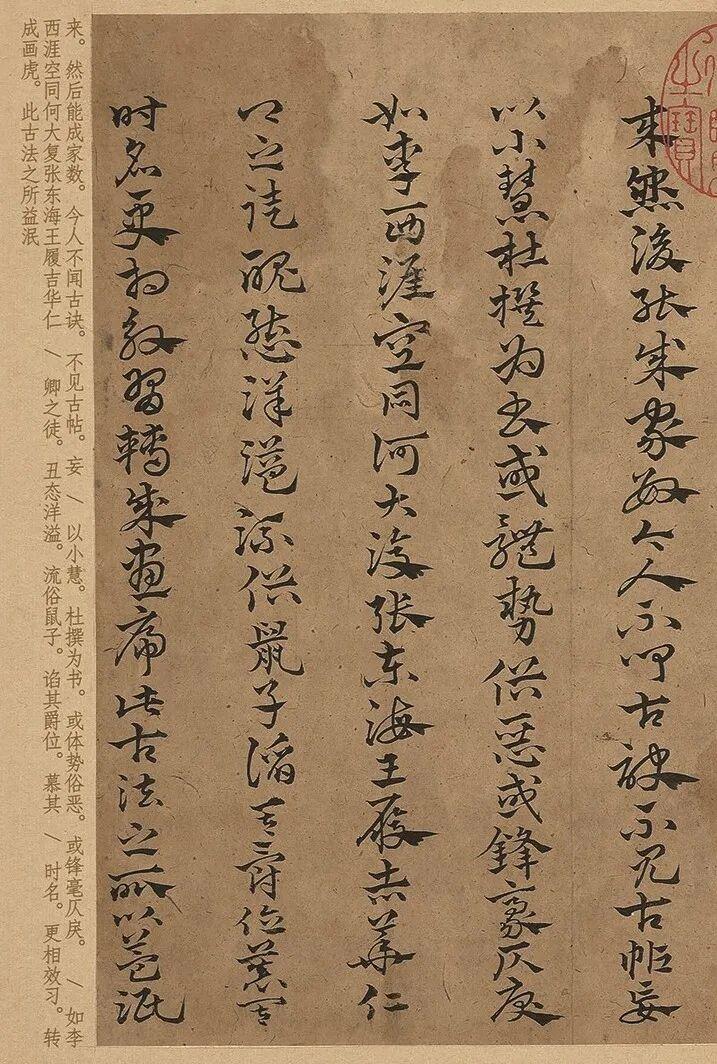 之寶
来然後能成家數今人不聞古訣不見古帖妄
以小慧杜撰为书或體勢俗惡或鋒豪仄戾
如李西涯空同何大復張東海王履吉華仁
卿之徒醜態洋溢流俗鼠子謟其爵位慕其
时名更相效習轉成畫虎此古法之所以益泯
来。然后能成家数。今人不闻古诀。不见古帖。妄 \ 以小慧。杜撰为书。或体势俗恶。或锋毫仄戾。 \ 如李
西涯空同何大复张东海王履吉华仁 \ 卿之徒。丑态洋溢。流俗鼠子。谄其爵位。慕其 \ 时名。更相效习。转
成画虎。此古法之所益泯